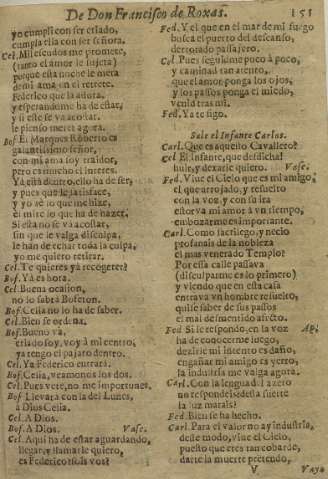 De Don Francisco de Roxas. 151
yo cumpli con ser criado,
cumpla ella con ser señora.
Cel. Mil escudos me promete,
(tanto el amor le sujeta)
porque esta noche le meta
de mi ama en el retrete.
Federico que la adora,
y esperandome ha de estar,
y si este se va a acostar,
le pienso meter agora.
Bof. El Marques Roberto es
galantissimo señor,
con mi ama soy traidor,
pero es mucho el interes.
Ya está dentro, ello ha de ser,
y pues que le satisface,
y yo sè lo que me hize,
èl mire lo que ha de hazer.
Si esta no se va acostar,
sin que le valga desculpa,
le han de echar toda la culpa,
yo me quiero retirar.
Cel. Te quieres ya recoger?
Bof. Ya es hora.
Cel. Buena ocasion,
no lo sabrà Bofeton.
Bof. Celia no lo ha de saber.
Cel. Bien se ordena.
Bof. Bueno va,
criado soy, voy à mi centro,
ya tengo el pajaro dentro.
Cel. Ya Federico entrarà.
Bof. Celia, veamonos los dos.
Cel. Pues vete, no me importunes.
Bof. Llevarà con la del Lunes,
à Dios Celia.
Cel. A Dios.
Bof. A Dios. Vase.
Cel. Aqui ha de estar aguardando,
llegarè, y llamarle quiero,
es Federico? sois vos?
Fed. Y el que en el mar de mi fuego
busca el puerto del descanso,
derrotado passajero.
Cel. Pues seguidme poco à poco,
y caminad tan atento,
que el amor ponga los ojos,
y los passos ponga el miedo,
venid tras mi.
Fed. Ya te sigo.
Sale el Infante Carlos.
Carl. Que es aquesto Cavallero?
Cel. El Infante, que desdicha!
huir, y dexarle quiero. Vase.
Fed. Vive el Cielo que es mi amigo,
el que arrojado, y resuelto
con la voz, y con su ira
estorva mi amor à vn tiempo,
embozarme es importante.
Carl. Como sacrilego, y necio
profanais de la nobleza
el mas venerado Templo?
Por esta calle passava
(disculparme es lo primero)
y viendo que en esta casa
entrava vn hombre resuelto,
quise saber de sus passos
el mal desmentido afecto.
Fed. Si le respondo, en la voz Ap.
ha de conocerme luego,
dezirle mi intento es daño,
engañar mi amigo es yerro,
la industria me valga agora.
Carl. Con la lengua del azero
no respondeis desta suerte
la luz
Fed. Bien se ha hecho.
Carl. Para el valor no ay industria,
deste modo, vive el Cielo,
puesto que eres tan cobarde,
darte la muerte pretendo,
V Vaya